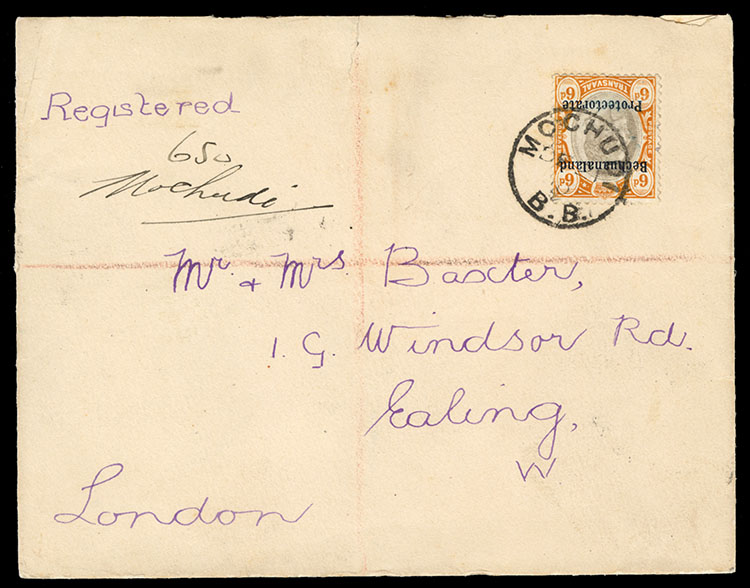 Registered
650
Mochudi
Mr. & Mrs. Baxter,
1. G. Windsor Rd.
Ealing,
W
London
6d TRANSVAAL 6d
Protectorate
Bechuanaland
6d 6d
MOCHUDI
B.B.